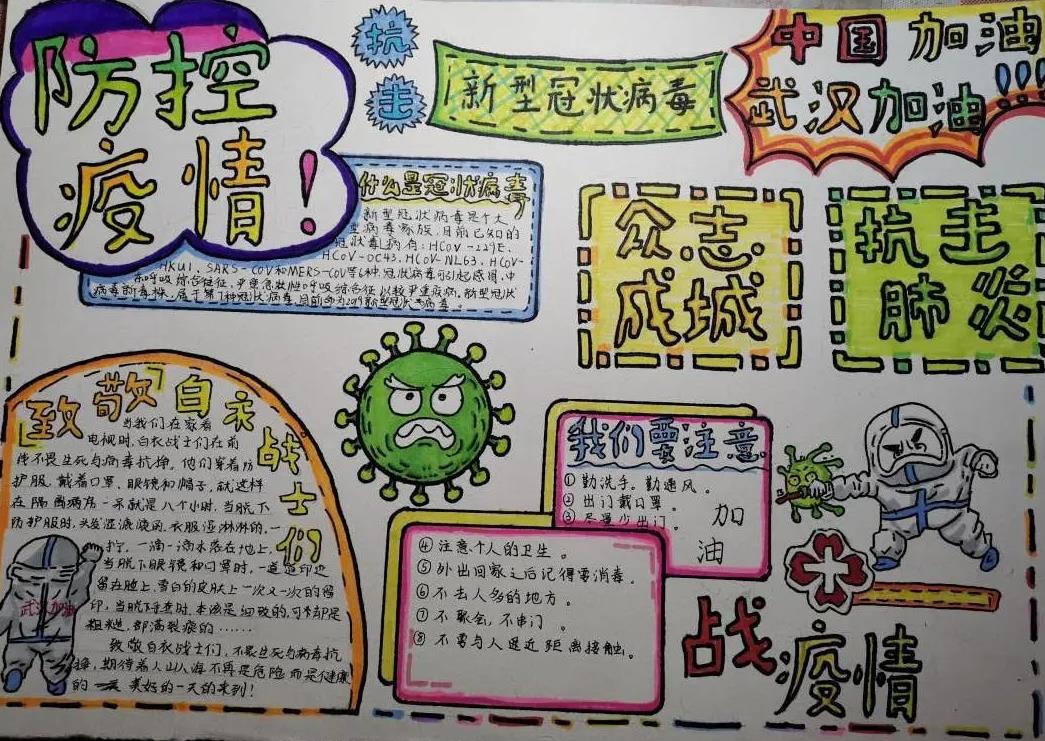 防控
疫情！
抗
击
新型冠状病毒
中国加油
武汉加油!!!
什么是冠状病毒
新型冠状病毒是个大
型病毒家族,目前已知的
冠状毒病有:HCoV-229E.
HCoV-OC43.HCoV-NL63.HCoV-
HKU1,SARS-COV和MERS-COV等6种冠状病毒可引起感冒,中
东呼吸综合征征,严重急性呼吸综合征以较严重疾病,新型冠状
病毒新毒株,属于第7种冠状病毒,目前命为2019新型冠状病毒。
众志
成城
抗击
肺炎
致敬白衣战士们
当我们在家看
电视时,白衣战士们在前
线不畏生死与病毒抗挣。他们穿着防
护服,戴着口罩、眼镜和帽子,就这样
在隔离病房一呆就是八个小时,当脱下
防护服时,头发湿漉漉的,衣服湿淋淋的,一
拧,一滴一滴水落在地上,
当脱下眼镜和口罩时,一道道印迹
留在脸上,雪白的皮肤上一次又一次的得
印,当脱下手套时,本该是细致的,可手却是
粗糙,部满裂痕的……
致敬白衣战士们,不畏生死与病毒抗
挣,期待着人山人海不再是危险而是健康
的 美好的一天的来到!
武汉加油
我们要注意
①勤洗手。勤通风。
②出门戴口罩。
③尽量少出门。
加
油
④注意个人的卫生。
⑤外出回家之后记得要消毒。
⑥不去人多的地方。
⑦不聚会,不串门。
⑧不要与人近距离接触。
战疫情